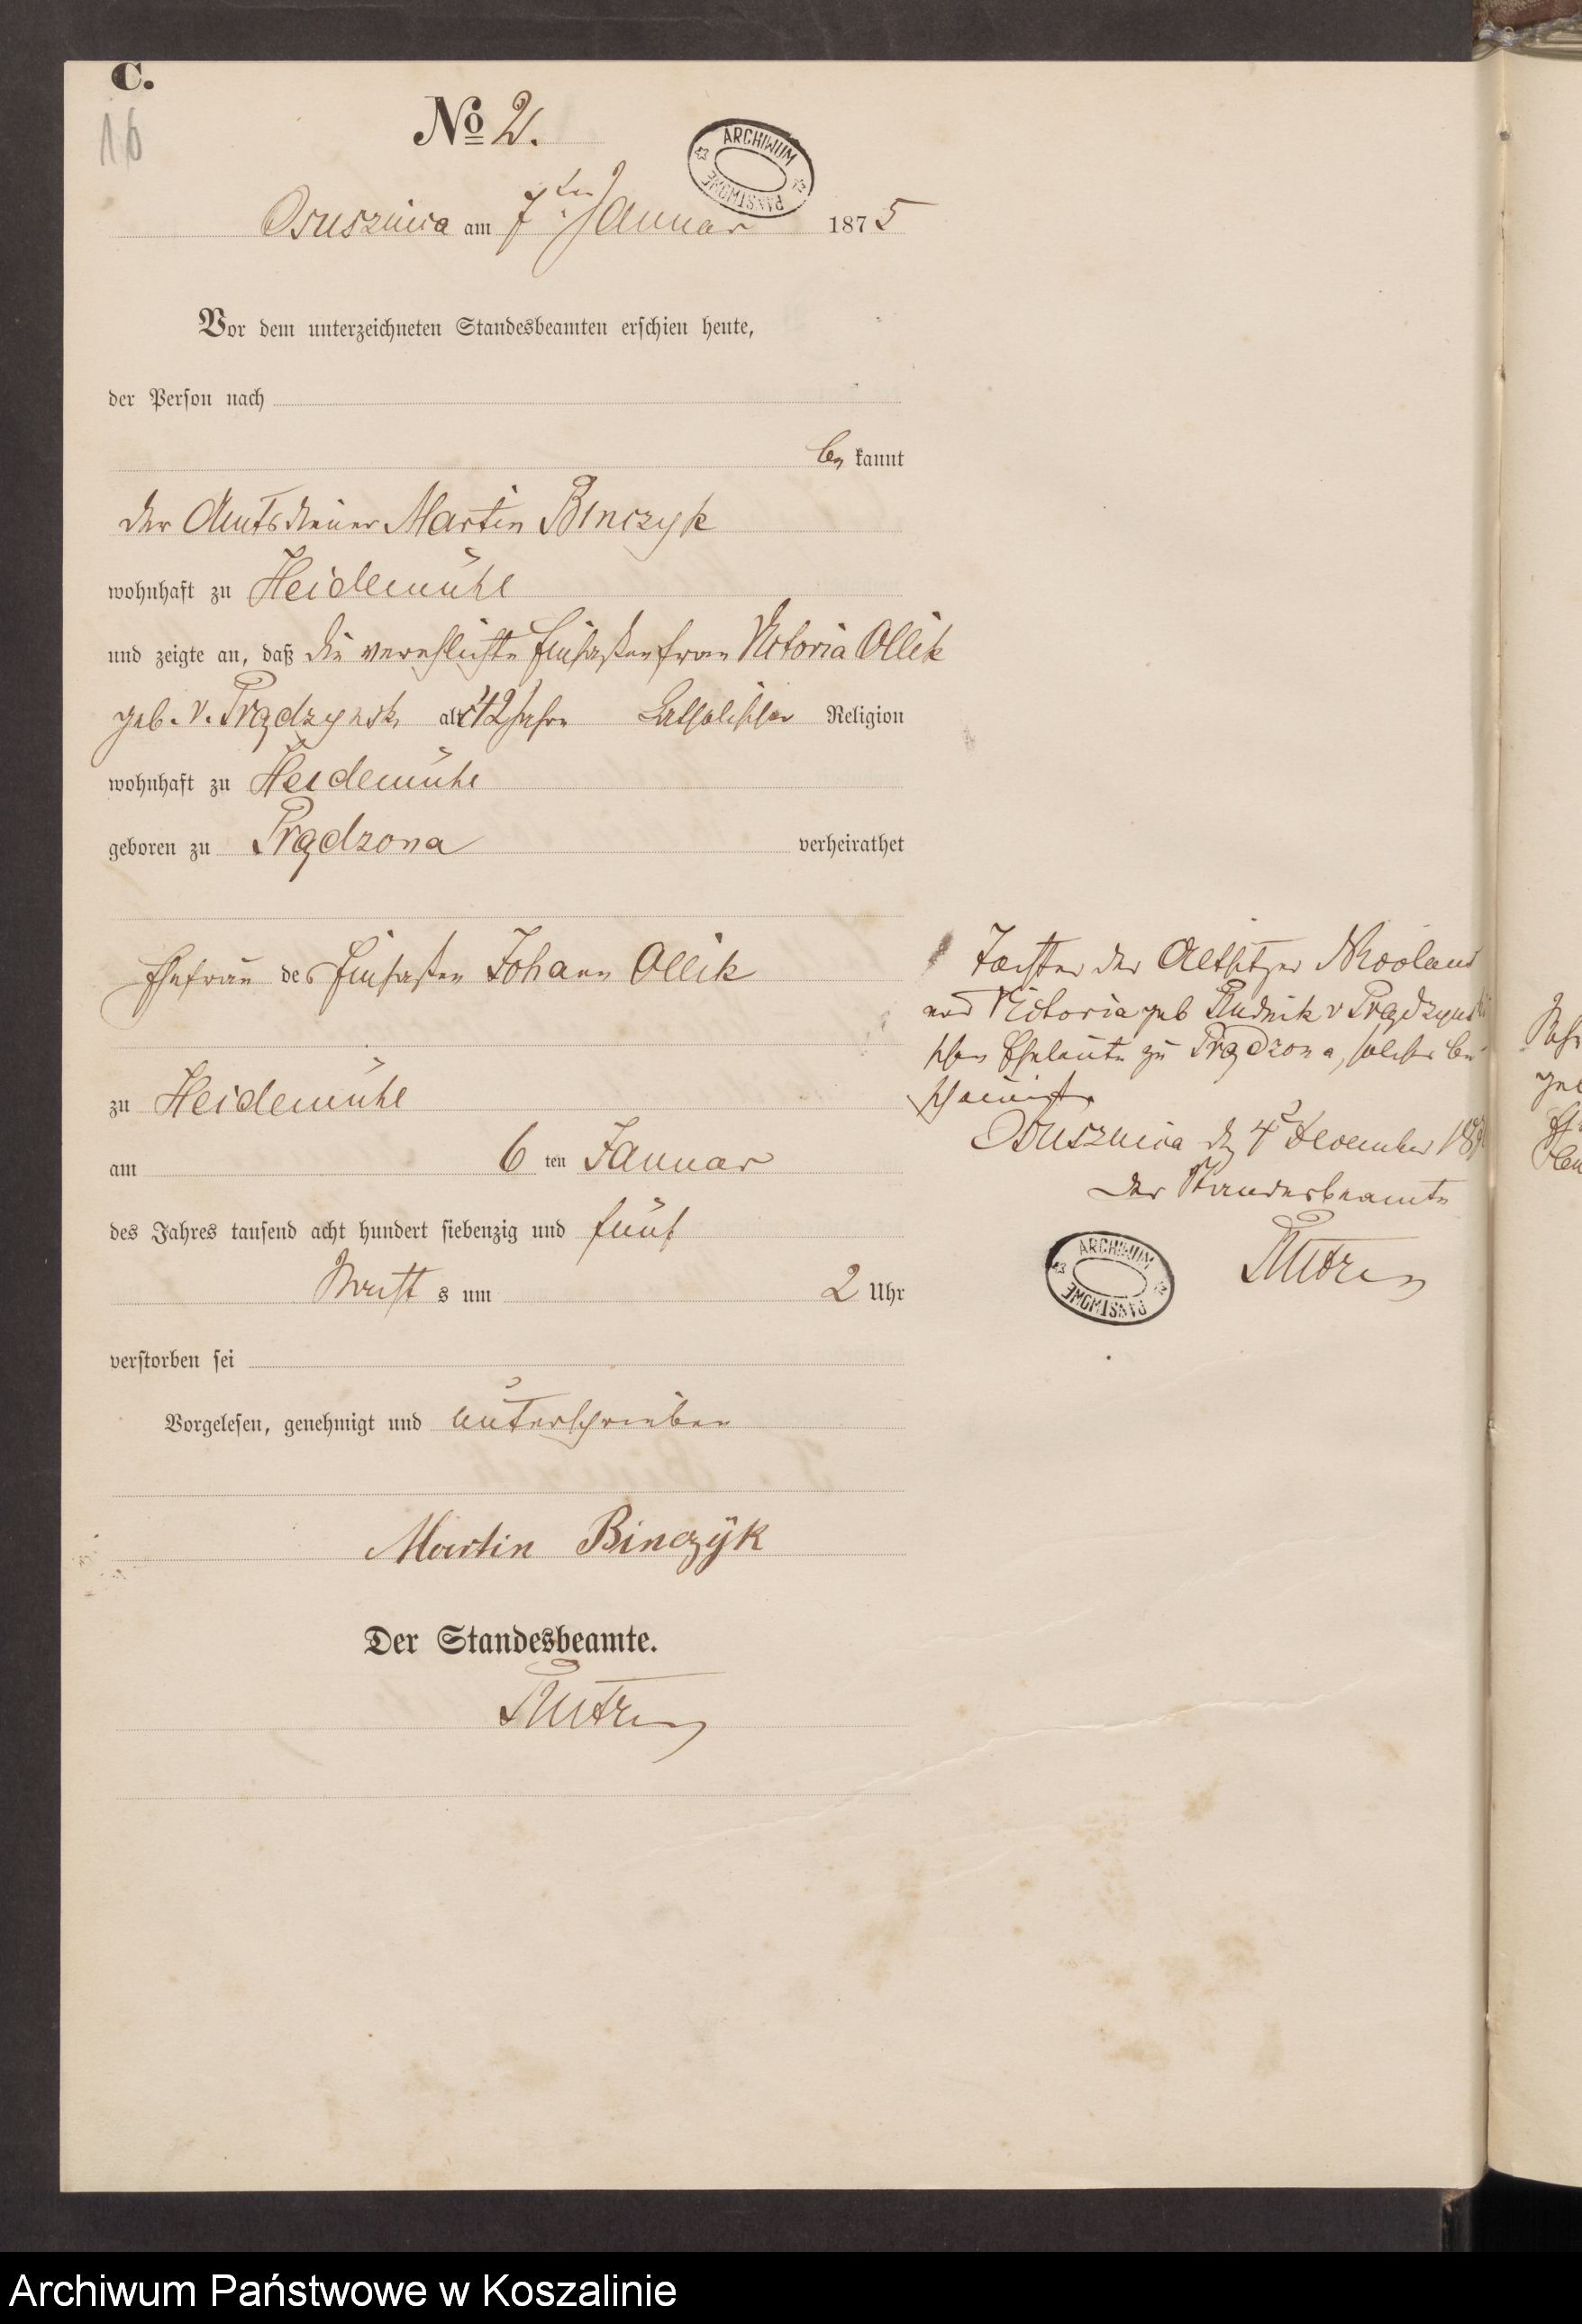 C.
16
No 2.
ARCHIWUM PAŃSTWOWE
Osusznica am 7ten Januar 1875
Vor dem unterzeichneten Standesbeamten erschien heute,
der Person nach
be kannt
der Amtsdiener Martin Binczyk
wohnhaft zu Heidemühl
und zeigte an, daß die verehlichte Einsaßenfrau Victoria Ollik
geb. v. Prądzynsk alt 42 Jahre katholischer Religion
wohnhaft zu Heidemühl
geboren zu Prądzona verheirathet
Ehefrau des Einsaßen Johann Ollik
zu Heidemühl
am 6 ten Januar
des Jahres tausend acht hundert siebenzig und fünf
Nachts um 2 Uhr
verstorben sei
Vorgelesen, genehmigt und unterschrieben
Martin Binczÿk
Der Standesbeamte.
Tochter der Altsitzer
und Victoria geb Rudnik v Prądzynski
schen Eheleute zu Prądzona, solches be-
scheinigt
Osusznica d 4 December 187
Der Standesbeamte
ARCHIWUM PAŃSTWOWE
Archiwum Państwowe w Koszalinie